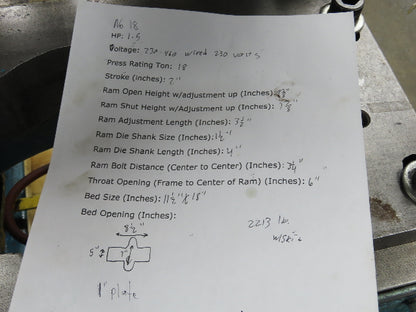 A6 18
HP: 1-5
Voltage: 230-460 wired 230 volts
Press Rating Ton: 18
Stroke (inches): 2"
Ram Open Height w/adjustment up (Inches):
Ram Shut Height w/Adjustment up (Inches):
Ram Adjustment Length (Inches): 3½"
Ram Die Shank Size (Inches): 1½"
Ram Die Shank Length (Inches): 4"
Ram Bolt Distance (Center to Center) (Inches): 3¼"
Throat Opening (Frame to Center of Ram) (Inches): 6"
Bed Size (Inches): 11½" x 18"
Bed Opening (Inches):
8½"
5"
7"
1" plate
2213 lb.